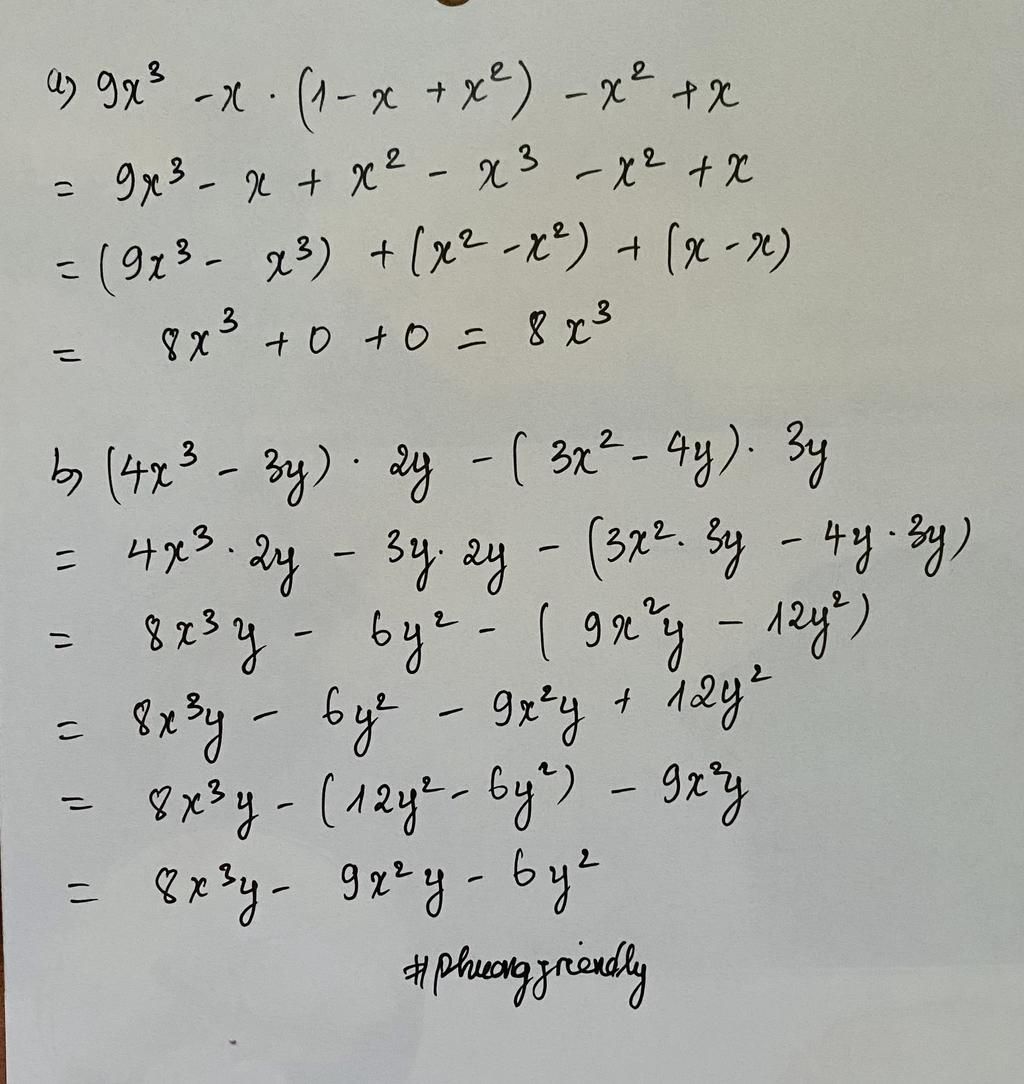 a) 9x³ - x · (1 - x + x²) - x² + x
= 9x³ - x + x² - x³ - x² + x
= (9x³ - x³) + (x² - x²) + (x - x)
= 8x³ + 0 + 0 = 8x³
b) (4x³ - 3y) · 2y - (3x² - 4y) · 3y
= 4x³ · 2y - 3y · 2y - (3x² · 3y - 4y · 3y)
= 8x³y - 6y² - (9x²y - 12y²)
= 8x³y - 6y² - 9x²y + 12y²
= 8x³y - (12y² - 6y²) - 9x²y
= 8x³y - 9x²y - 6y²
#phuongfriendly